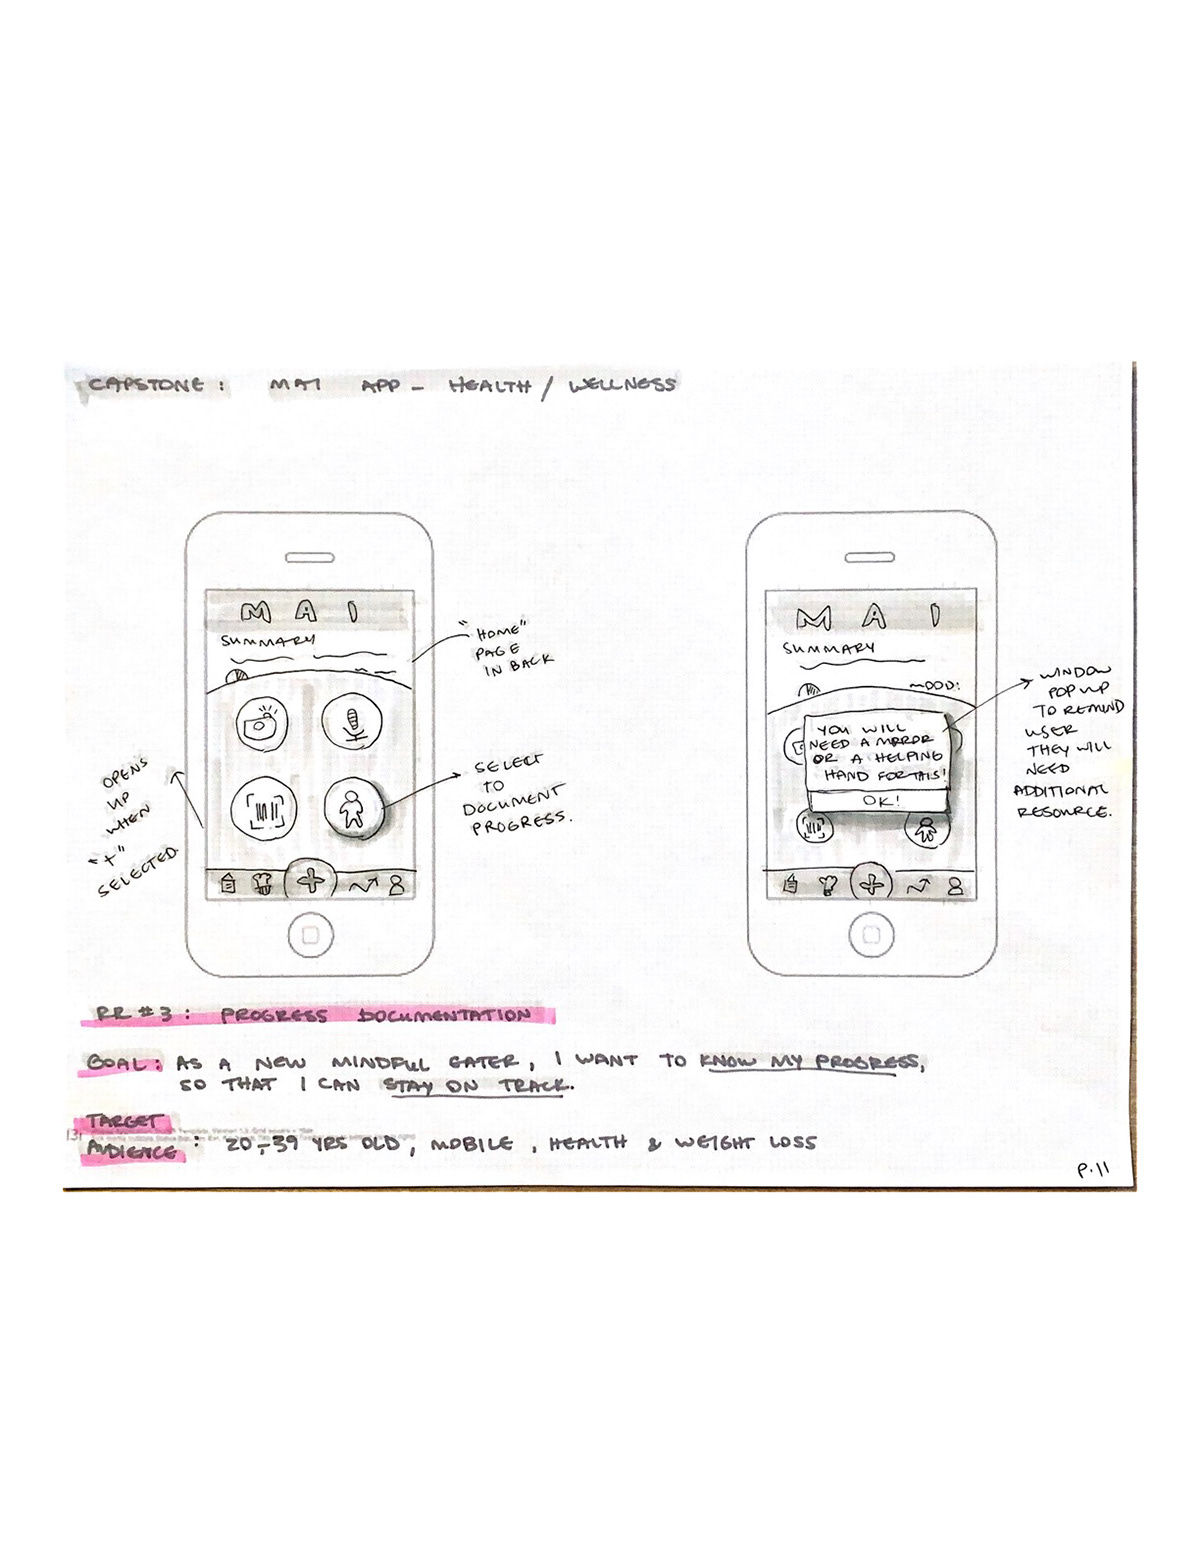 CAPSTONE: MAI APP - HEALTH / WELLNESS
M A I
SUMMARY
"HOME"
PAGE
IN BACK
OPENS
UP
WHEN
"+"
SELECTED.
SELECT
TO
DOCUMENT
PROGRESS.
M A I
SUMMARY
MOOD:
YOU WILL
NEED A MIRROR
OR A HELPING
HAND FOR THIS!
OK!
WINDOW
POP UP
TO REMIND
USER
THEY WILL
NEED
ADDITIONAL
RESOURCE.
RR #3: PROGRESS DOCUMENTATION
GOAL: AS A NEW MINDFUL EATER, I WANT TO KNOW MY PROGRESS,
SO THAT I CAN STAY ON TRACK.
TARGET
AUDIENCE: 20-39 YRS OLD, MOBILE, HEALTH & WEIGHT LOSS
P.11